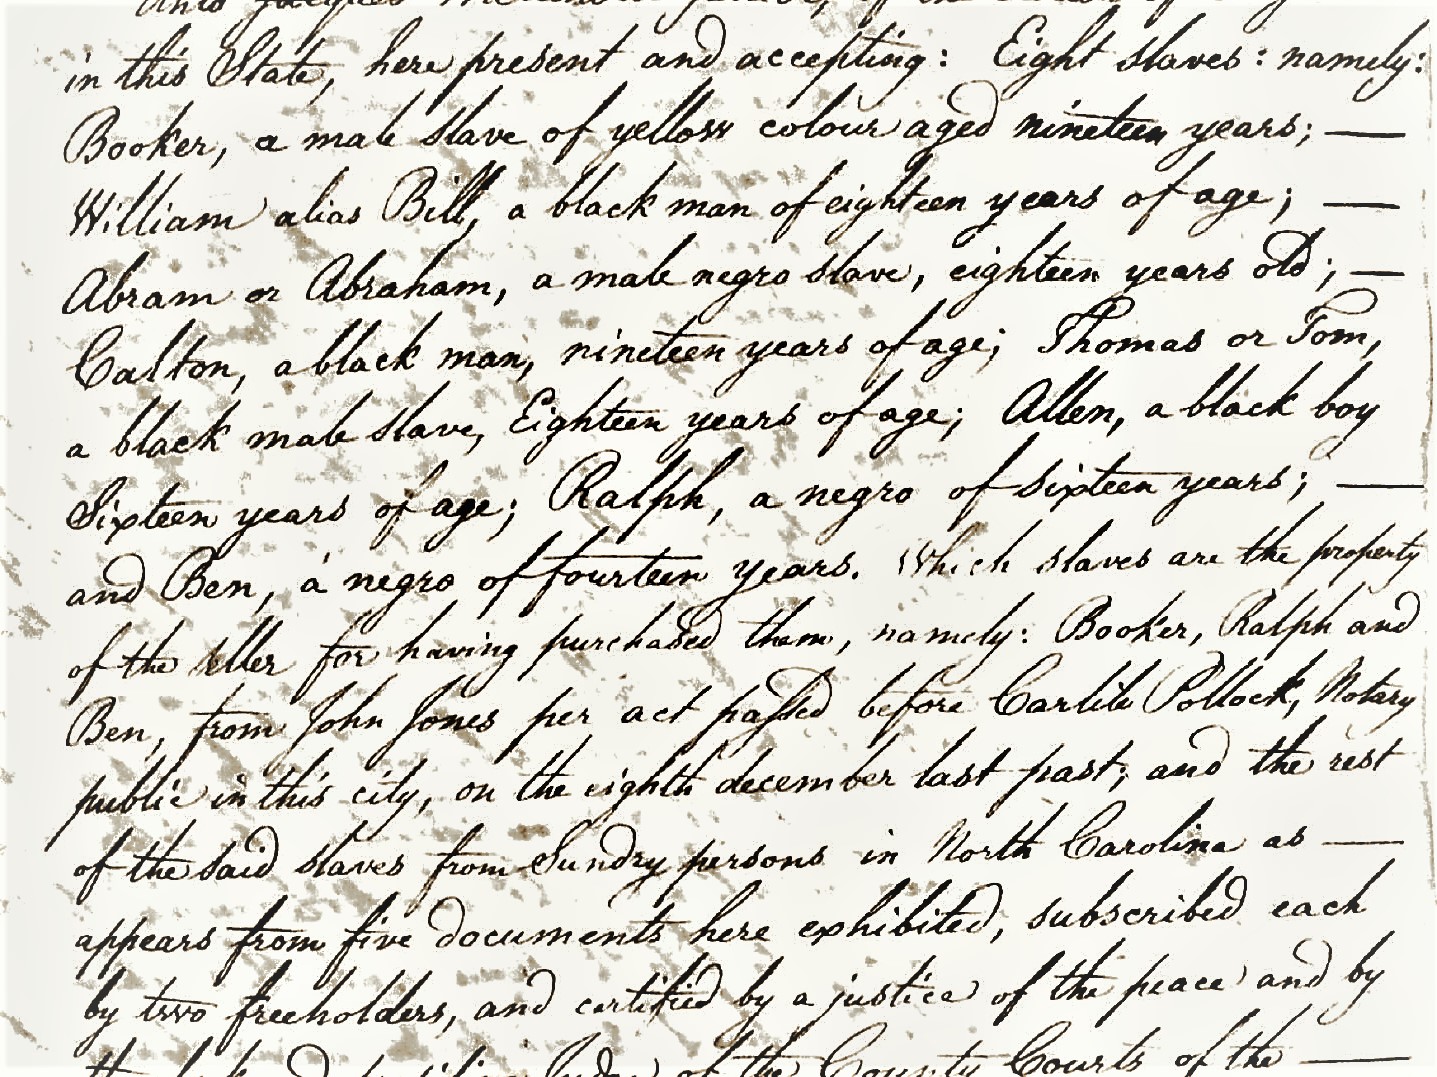 in this State, here present and accepting: Eight slaves: namely:
Booker, a male slave of yellow colour aged nineteen years; —
William alias Bill, a black man of eighteen years of age; —
Abram or Abraham, a male negro slave, eighteen years old; —
Calton, a black man, nineteen years of age; Thomas or Tom,
a black male slave, Eighteen years of age; Allen, a black boy
Sixteen years of age; Ralph, a negro of sixteen years; —
and Ben, a negro of fourteen years. Which slaves are the property
of the seller for having purchased them, namely: Booker, Ralph and
Ben, from John Jones per act passed before Carlile Pollock, Notary
public in this city, on the eighth december last past; and the rest
of the said slaves from Sundry persons in North Carolina as —
appears from five documents here exhibited, subscribed each
by two freeholders, and certified by a justice of the peace and by
of the County Courts of the —